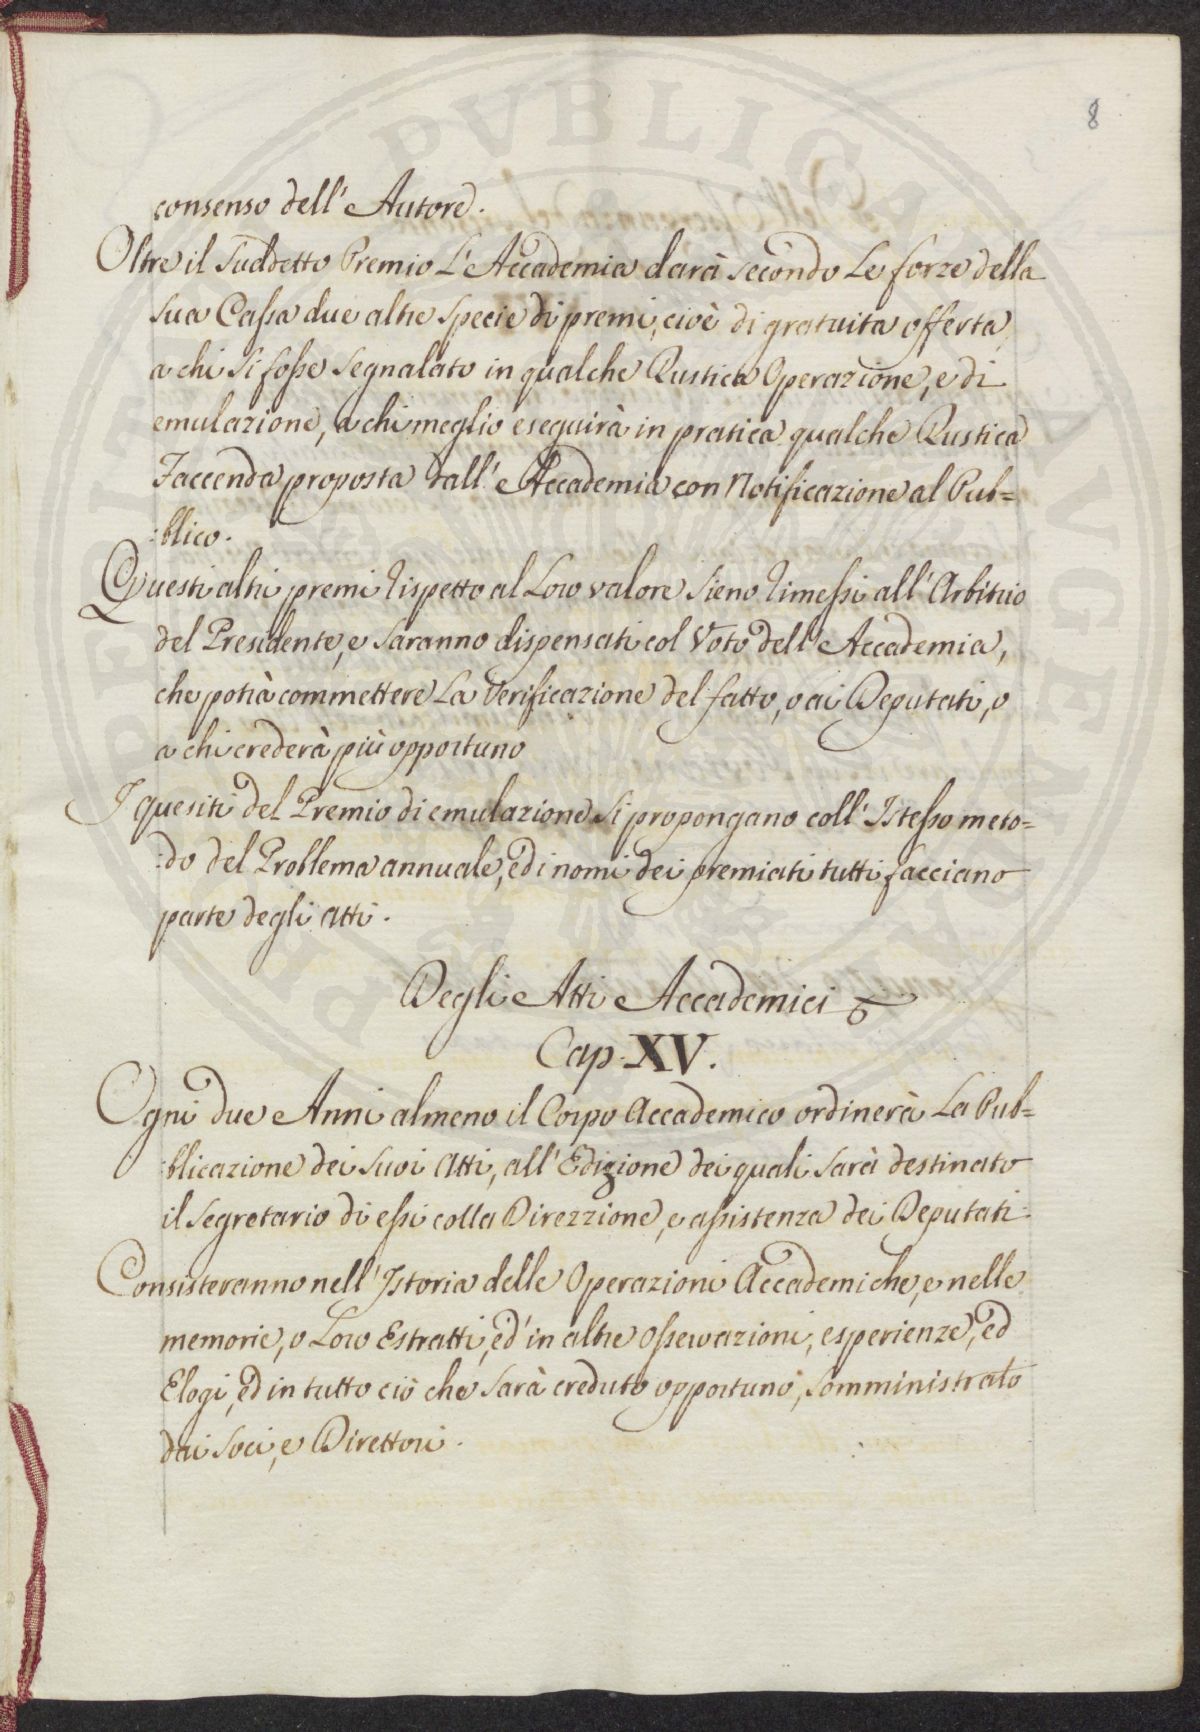 8
consenso dell' Autore.
Oltre il Suddetto Premio L'Accademia darà secondo Le forze della
sua Cassa due altre specie di premi, cioè di gratuita offerta
a chi si fosse segnalato in qualche Rustica Operazione, e di
emulazione, a chi meglio eseguirà in pratica qualche Rustica
Faccenda proposta dall' Accademia con Notificazione al Pub=
:blico.
Questi altri premi rispetto al Loro valore sieno rimessi all' Arbitrio
del Presidente, e saranno dispensati col Voto dell' Accademia,
che potrà commettere La Verificazione del fatto, o ai Deputati, o
a chi crederà più opportuno
I quesiti del Premio di emulazione si propongano coll' Istesso meto=
:do del Problema annuale, ed i nomi dei premiati tutti facciano
parte degli atti.
Degli Atti Accademici
Cap. XV.
Ogni due Anni almeno il Corpo Accademico ordinerà La Pub=
:blicazione dei suoi Atti, all' Edizione dei quali sarà destinato
il Segretario di essi colla Direzzione, e assistenza dei Deputati.
Consisteranno nell' Istoria delle Operazioni Accademiche, e nelle
memorie, o Loro Estratti, ed' in altre ossewazioni, esperienze, ed
Elogi, ed in tutto ciò che sarà creduto opportuno, somministrato
dai Soci, e Direttori.